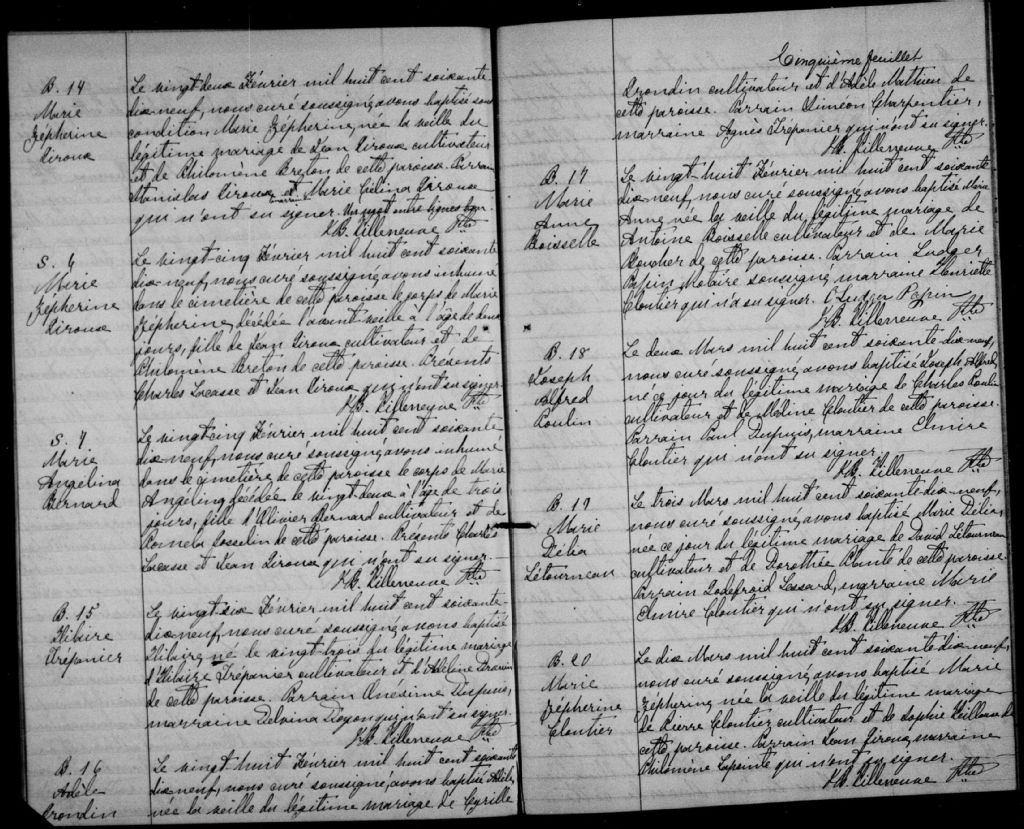 B. 14
Marie
Zépherine
Giroux
Le vingt deux Février mil huit cent soixante
dix neuf, nous curé soussigné, avons baptisé sous
condition Marie Zépherine, née la veille du
légitime mariage de Jean Giroux cultivateur
et de Philomène Breton de cette paroisse. Parrain
Stanislas Giroux et Marie Célina Giroux
qui n'ont su signer. Un mot entre lignes bon.
J.B. Villeneuve Ptre
S. 6
Marie
Zépherine
Giroux
Le vingt-cinq Février mil huit cent soixante
dix-neuf, nous curé soussigné, avons inhumé
dans le cimetière de cette paroisse le corps de Marie
Zépherine, décédée l'avant-veille à l'age de deux
jours, fille de Jean Giroux cultivateur et de
Philomène Breton de cette paroisse. Présents
Charles Lacasse et Jean Giroux qui n'ont su signer.
J.B. Villeneuve Ptre
S. 7
Marie
Angelina
Bernard
Le vingt-cinq Février mil huit cent soixante
dix-neuf, nous curé soussigné, avons inhumé
dans le cimetière de cette paroisse le corps de Marie
Angelina décédée le vingt deux à l'age de trois
jours, fille d'Olivier Bernard cultivateur et de
Pamela Gosselin de cette paroisse. Présents Charles
Lacasse et Jean Giroux qui n'ont su signer.
J.B. Villeneuve Ptre
B. 15
Hilaire
Trépanier
Le vingt-six Février mil huit cent soixante
dix-neuf, nous curé soussigné, avons baptisé
Hilaire, né le vingt-trois du légitime mariage
d'Hilaire Trépanier cultivateur et d'Adeline Drouin
de cette paroisse. Parrain Onésime Dupuis,
marraine Delvina Dion qui n'ont su signer.
J.B. Villeneuve Ptre
B. 16
Adèle
Grondin
Le vingt huit Février mil huit cent soixante
dix-neuf, nous curé soussigné, avons baptisé Adèle,
née la veille du légitime mariage de Cyrille
Cinquième feuillet
Grondin cultivateur et d'Adèle Mathieu de
cette paroisse. Parrain Siméon Charpentier,
marraine Agnès Trépanier qui n'ont su signer.
J.B. Villeneuve Ptre
B. 17
Marie
Anne
Boisselle
Le vingt-huit Février mil huit cent soixante
dix-neuf, nous curé soussigné, avons baptisé Marie
Anne, née la veille du légitime mariage de
Antoine Boisselle cultivateur et de Marie
Boucher de cette paroisse. Parrain Ludger
Papin Notaire soussigné, marraine Henriette
Cloutier qui n'a su signer. Ludger Papin
J.B. Villeneuve Ptre
B. 18
Joseph
Alfred
Poulin
Le deux Mars mil huit cent soixante dix-neuf,
nous curé soussigné, avons baptisé Joseph Alfred,
né ce jour du légitime mariage de Charles Poulin
cultivateur et de Cloutier de cette paroisse.
Parrain Paul Dupuis, marraine Elmire
Cloutier qui n'ont su signer.
J.B. Villeneuve Ptre
B. 19
Marie
Délia
Létourneau
Le trois Mars mil huit cent soixante-dix-neuf,
nous curé soussigné, avons baptisé Marie Délia,
née ce jour du légitime mariage de David Létourneau
cultivateur et de Dorothée Plante de cette paroisse.
Parrain Godefroid Lessard, marraine Marie
Elmire Cloutier qui n'ont su signer.
J.B. Villeneuve Ptre
B. 20
Marie
Zépherine
Cloutier
Le dix Mars mil huit cent soixante dix-neuf,
nous curé soussigné, avons baptisé Marie
Zépherine née la veille du légitime mariage
de Pierre Cloutier cultivateur et de Sophie Veilleux de
cette paroisse. Parrain Jean Giroux, marraine
Philomène Lapointe qui n'ont su signer.
J.B. Villeneuve Ptre